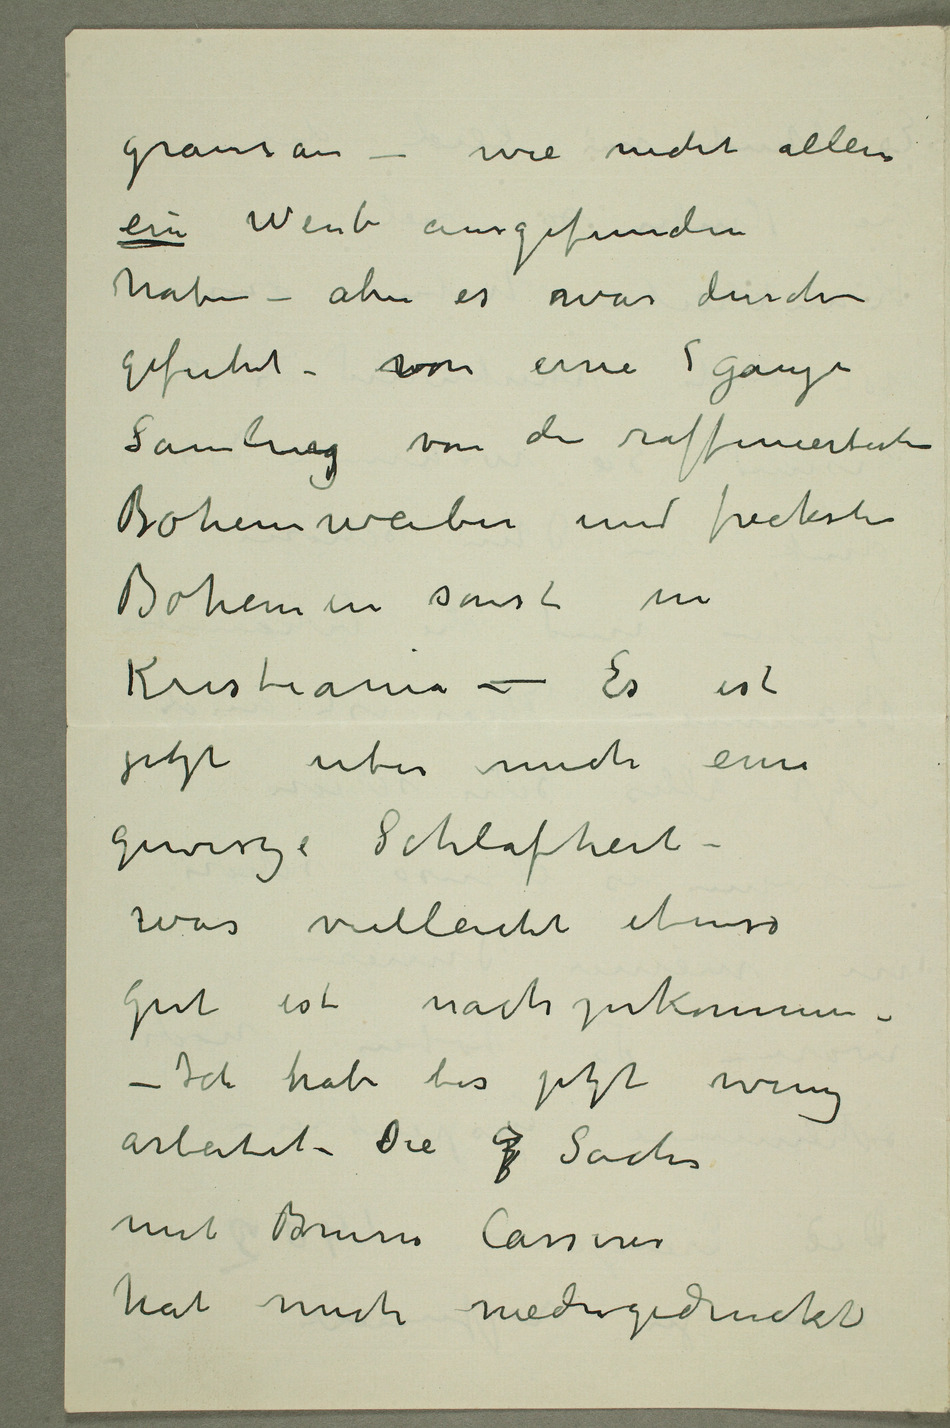 grausam – wie nicht allein
ein Weib ausgefunden
haben – aber es war durch
gefuhrt – von eine ganze
Samlung von die raffiniertesten
Bohemweiber und frechste
Bohemen sonst in
Kristiania – Es ist
jetzt uber mich eine
gewisze Schlafheit –
was vielleicht ebenso
gut ist nach zu kommen –
– Ich habe bis jetzt wenig
arbeitet – Die Sache
mit Bruno Cassirer
hat mich niedergedruckt